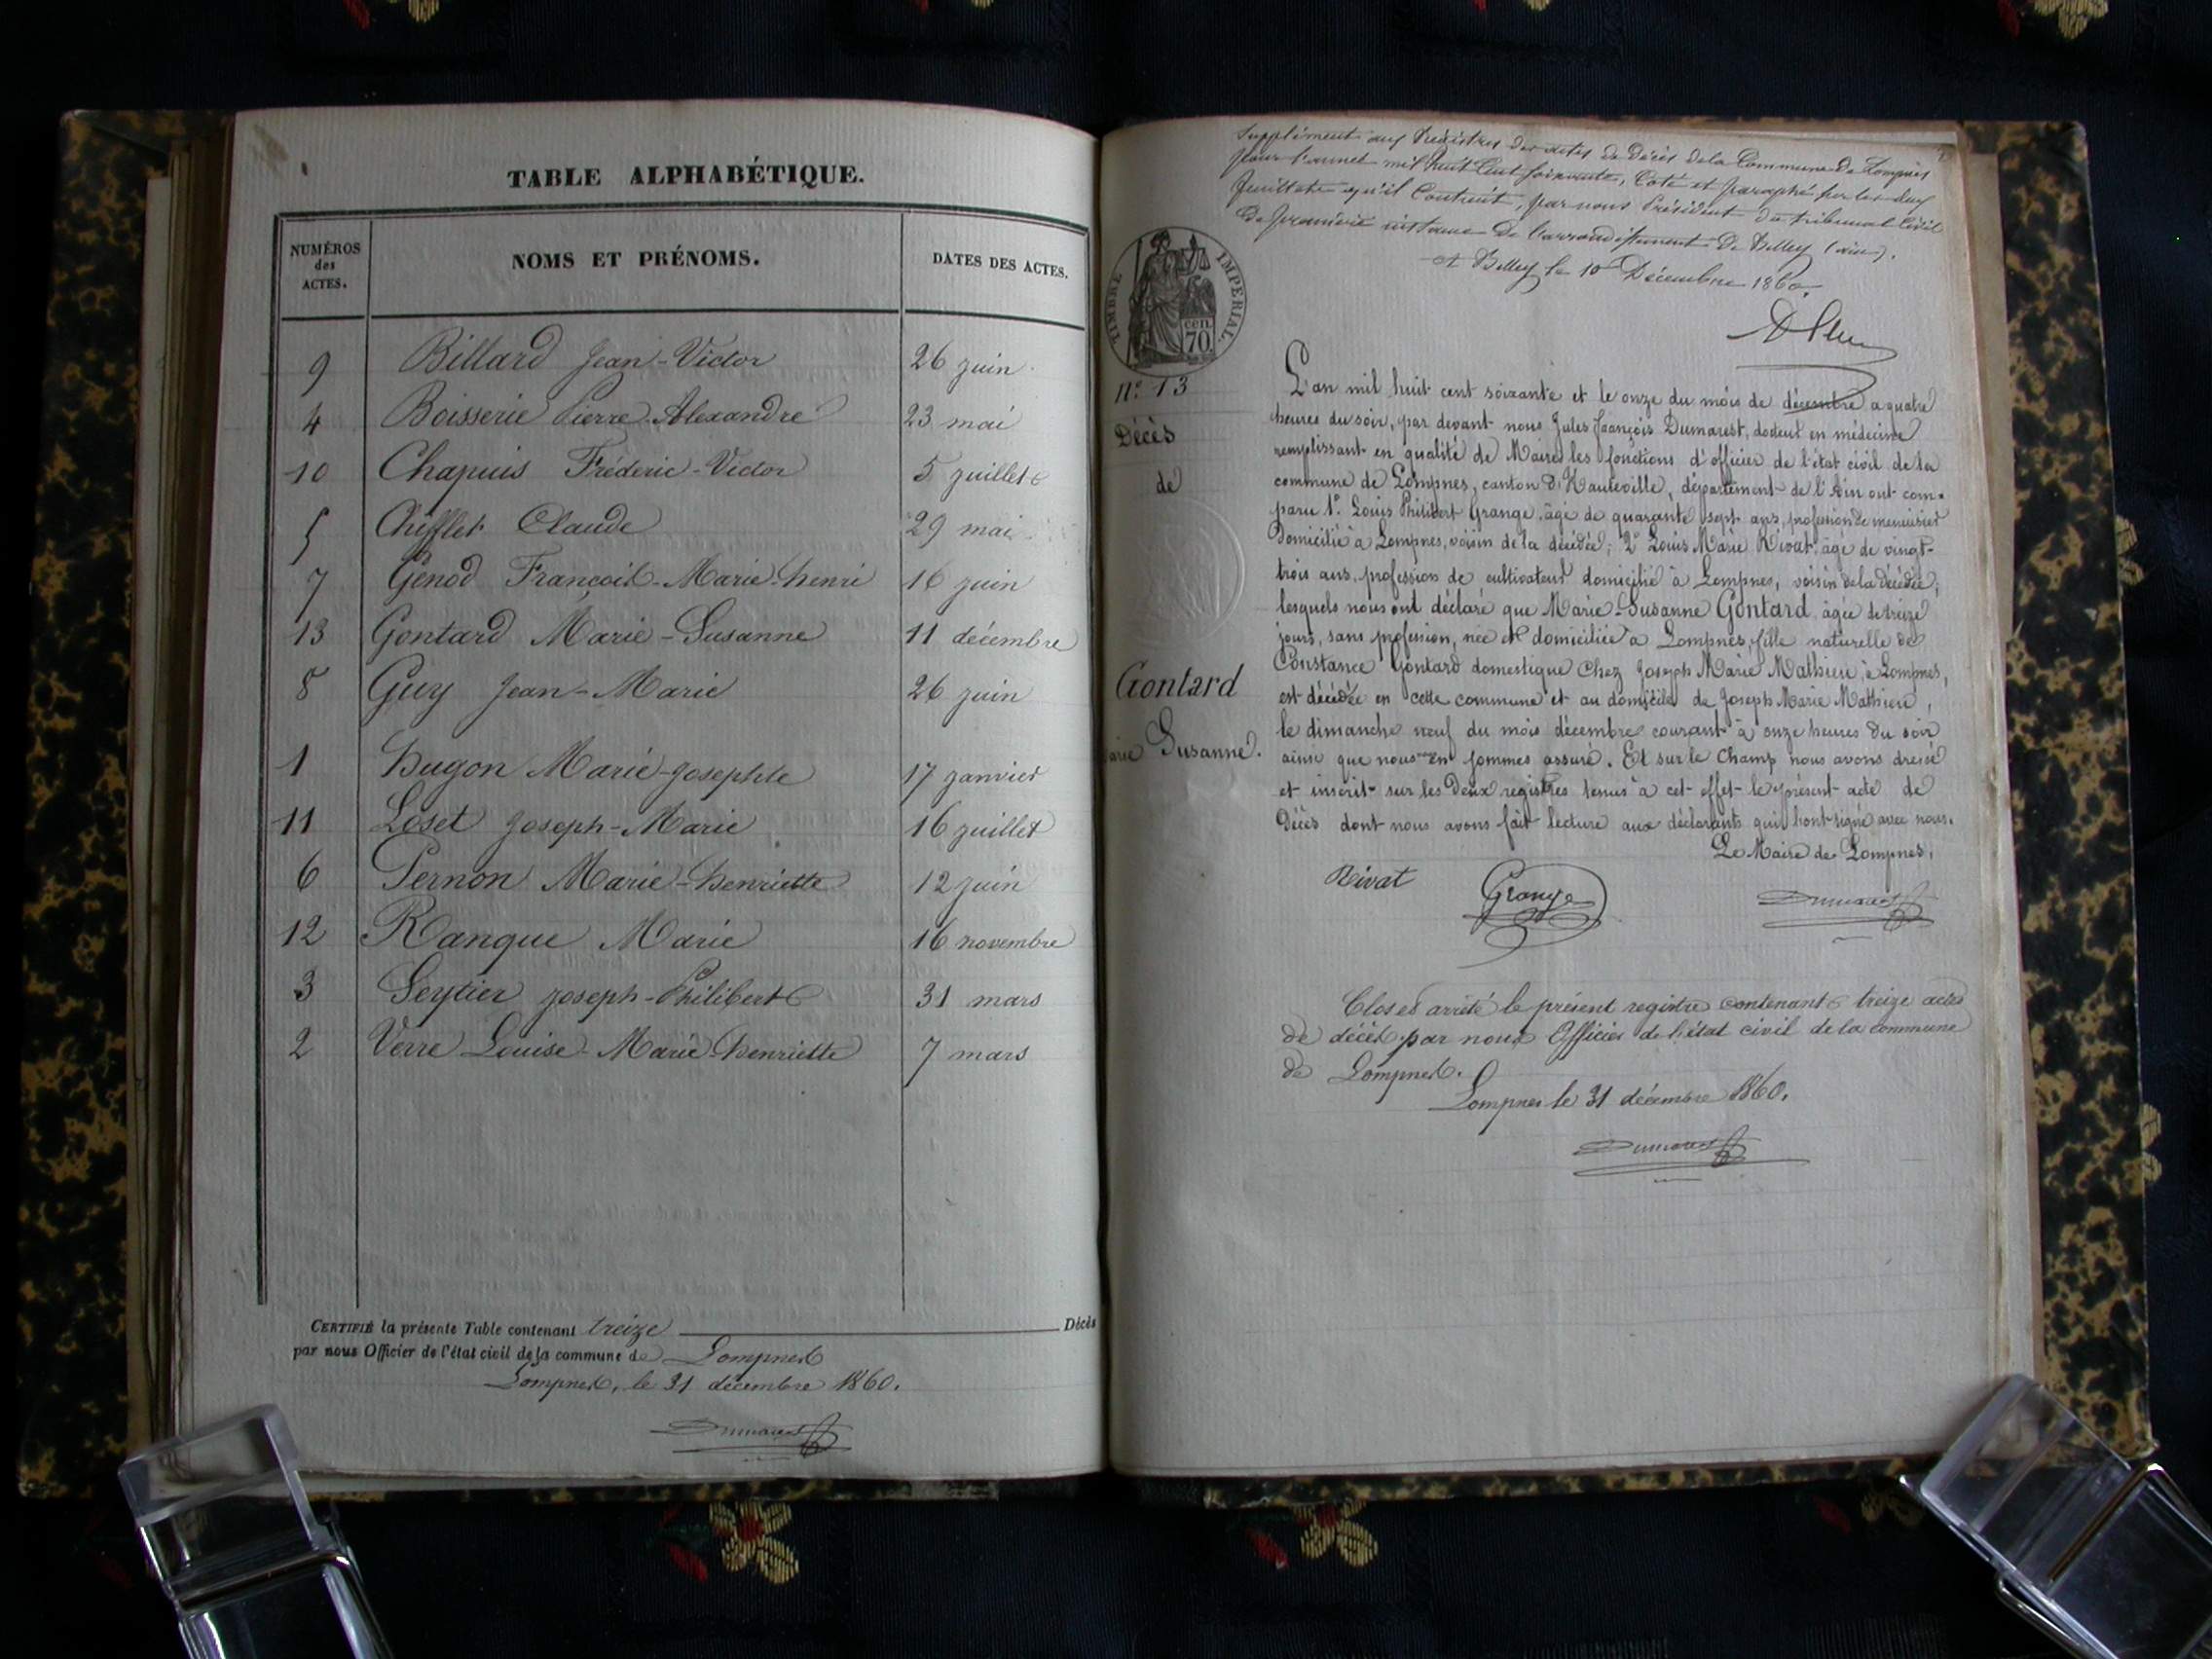 TABLE ALPHABÉTIQUE.
NUMÉROS des ACTES. NOMS ET PRÉNOMS. DATES DES ACTES.
9 Billard Jean-Victor 26 juin
4 Boisserie Pierre-Alexandre 23 mai
10 Chapuis Fréderic-Victor 5 juillet
5 Chifflet Claude 29 mai
7 Genod François-Marie-henri 16 juin
13 Gontard Marie-Susanne 11 décembre
8 Guy Jean-Marie 26 juin
1 hugon Marie-Josephte 17 janvier
11 Loset Joseph-Marie 16 juillet
6 Pernon Marie-henriette 12 juin
12 Ranque Marie 16 novembre
3 Seytier Joseph-Philibert 31 mars
2 Verre Louise-Marie-henriette 7 mars
CERTIFIÉ la présente Table contenant treize Décès
par nous Officier de l'état civil de la commune de Lompnes
Lompnes, le 31 décembre 1860.
Dumarest
Supplément aux Registres des actes de Décès de la Commune de Lompnes
pour l'année mil huit Cent soixante, Coté et paraphé par les deux
feuillets qu'il Contient, par nous Président du tribunal Civil
de première instance de l'arrondissement de Belley (ain).
A Belley le 10 Décembre 1860.
TIMBRE IMPERIAL
cen. 70
N° 13
Décès
de
Gontard
Marie Susanne.
L'an mil huit cent soixante et le onze du mois de décembre a quatre
heures du soir, par devant nous Jules François Dumarest, docteur en médecine
remplissant en qualité de Maire les fonctions d'officier de l'état civil de la
commune de Lompnes, canton d'Hauteville, département de l'Ain ont com-
paru 1° Louis Philibert Grange, âgé de quarante sept ans, profession de menuisier
Domicilié à Lompnes, voisin de la décédée; 2° Louis Marie Rivat, âgé de vingt-
trois ans, profession de cultivateur domicilié à Lompnes, voisin de la décédée;
lesquels nous ont déclaré que Marie-Susanne Gontard, âgée de treize
jours, sans profession, née et domiciliée à Lompnes, fille naturelle de
Constance Gontard domestique chez Joseph Marie Mathieu, à Lompnes,
est décédée en cette commune et au domicile de Joseph Marie Mathieu,
le dimanche neuf du mois décembre courant à onze heures du soir
ainsi que nous nous en sommes assuré. Et sur le Champ nous avons dressé
et inscrit sur les deux registres tenus à cet effet le présent acte de
Décès dont nous avons fait lecture aux déclarants qui l'ont signé avec nous.
Le Maire de Lompnes,
Rivat Grange Dumarest
Clos et arrêté le présent registre contenant treize actes
de décès par nous Officier de l'état civil de la commune
de Lompnes.
Lompnes le 31 décembre 1860.
Dumarest